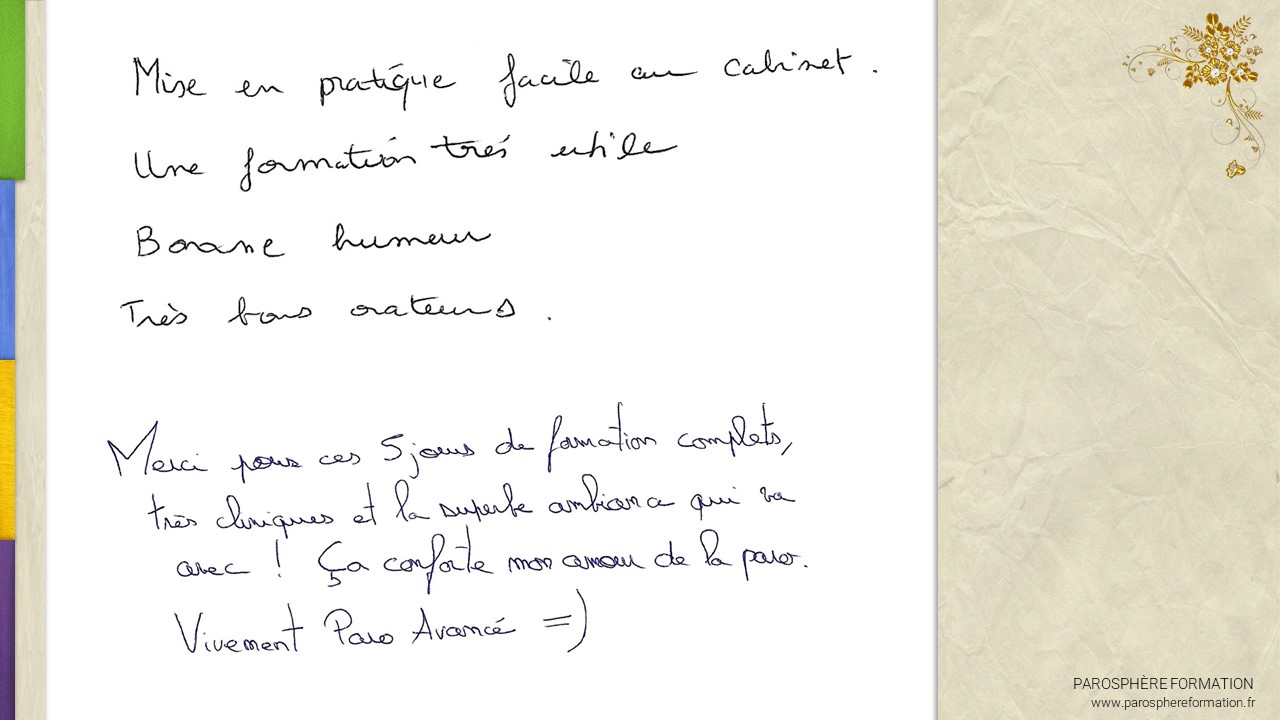 Mise en pratique facile au cabinet.
Une formation très utile
Bonne humeur
Très bons orateurs.
Merci pour ces 5 jours de formation complets,
très cliniques et la superbe ambiance qui va
avec ! Ça conforte mon amour de la paro.
Vivement Paro Avancé =)
PAROSPHÈRE FORMATION
www.parosphereformation.fr